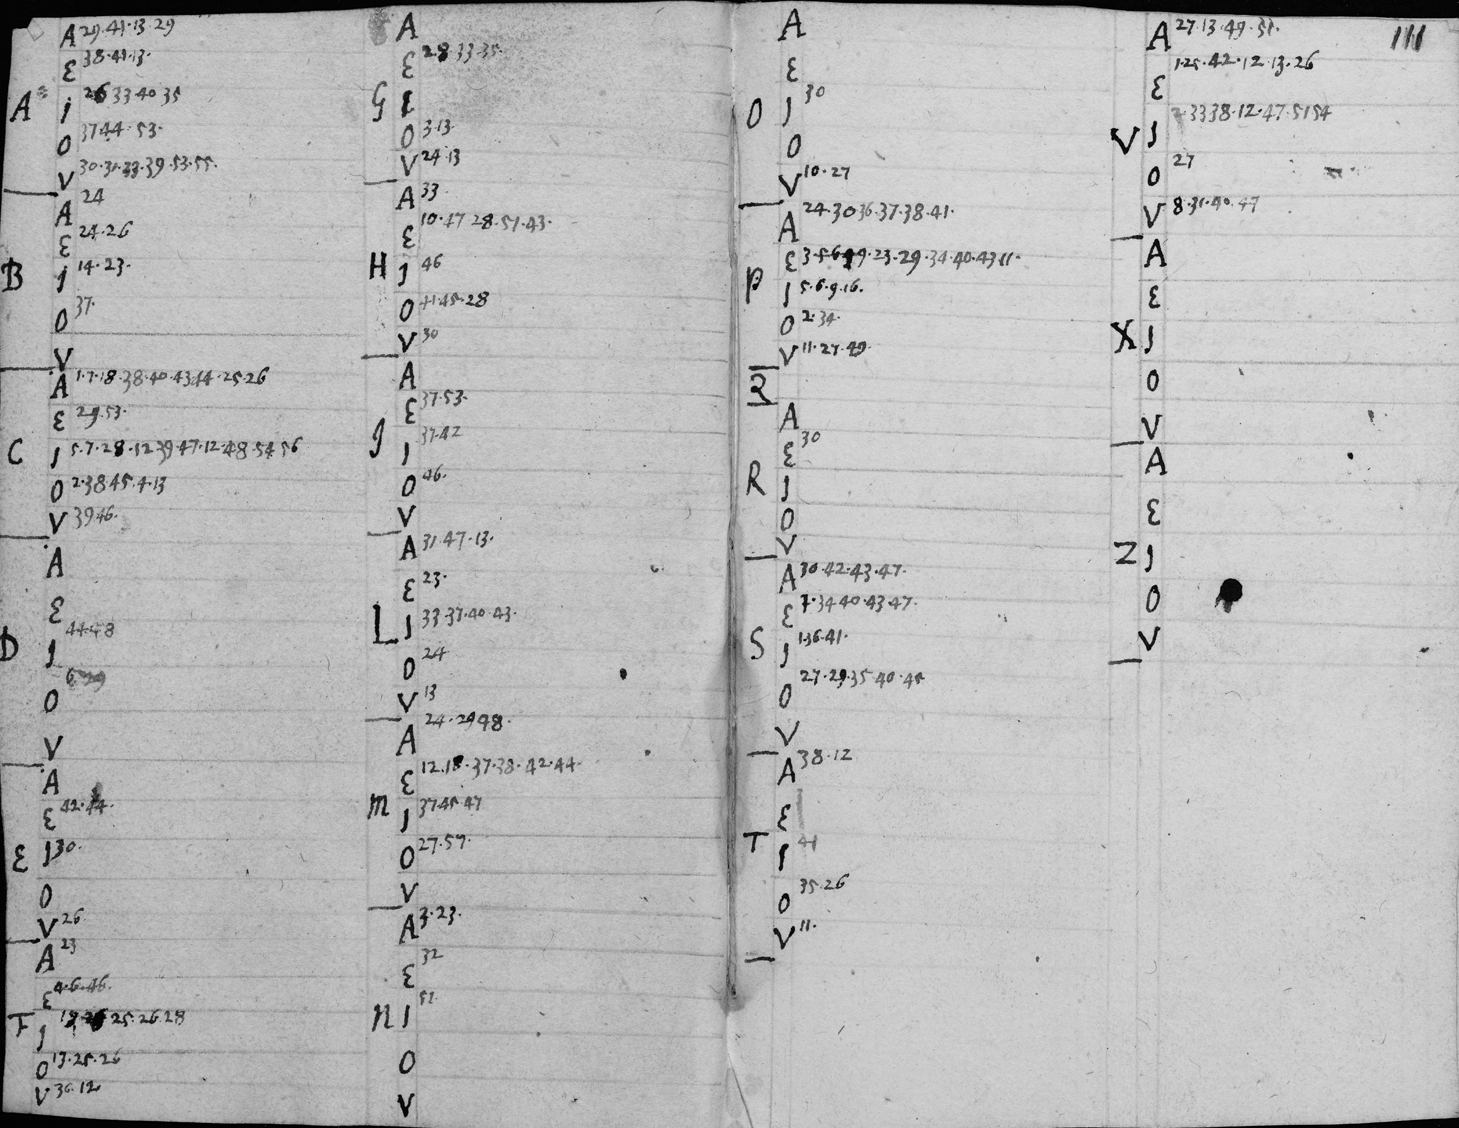 A
A 29.41.13.29
E 38.41.13.
I 26 33 40 35
O 37 44.53.
V 30.31.33.39.53.55.
B
A 24
E 24.26
I 14.23.
O 37.
V
C
A 1.7.18.38.40.43 44.25.26
E 29.53.
I 5.7.28.12 39.47.12.48.54 56
O 2.38 45.4.13
V 39 46.
D
A
E
I 44 48
O 6 29
V
E
A
E 42.44.
I 30.
O
V 26
F
A 23
E 4.6.46.
I 25.26.28
O 13.25.26
V 36.12
G
A
E 28 33.35.
I
O 3.13.
V 24.13
H
A 33
E 10.47 28.51.43.
I 46
O 41.45.28
V 30
I
A
E 37.53.
I 37.42
O 46.
V
L
A 31.47.13.
E 23.
I 33.37.40.43.
O 24
V 13
M
A 24.29 48.
E 12.18.37.38.42.44.
I 37 45.47
O 27.57.
V
N
A 3.23.
E 32
I 51
O
V
O
A
E
I 30
O
V 10.27
P
A 24.30 36.37.38.41.
E 3.5.6 19.23.29.34.40.43 11.
I 5.6.9.16.
O 2.34
V 11.27.49.
Q
R
A
E 30
I
O
V
S
A 30.42.43.47.
E 7.34 40.43 47.
I 1 36.41.
O 27.29 35.40.45
V
T
A 38.12
E
I 41
O 35.26
V 11.
111
V
A 27.13.49.51.
E 1.25.42.12.13.26
I 2.33 38.12.47.51 54
O 27
V 8.31.40.47
X
A
E
I
O
V
Z
A
E
I
O
V